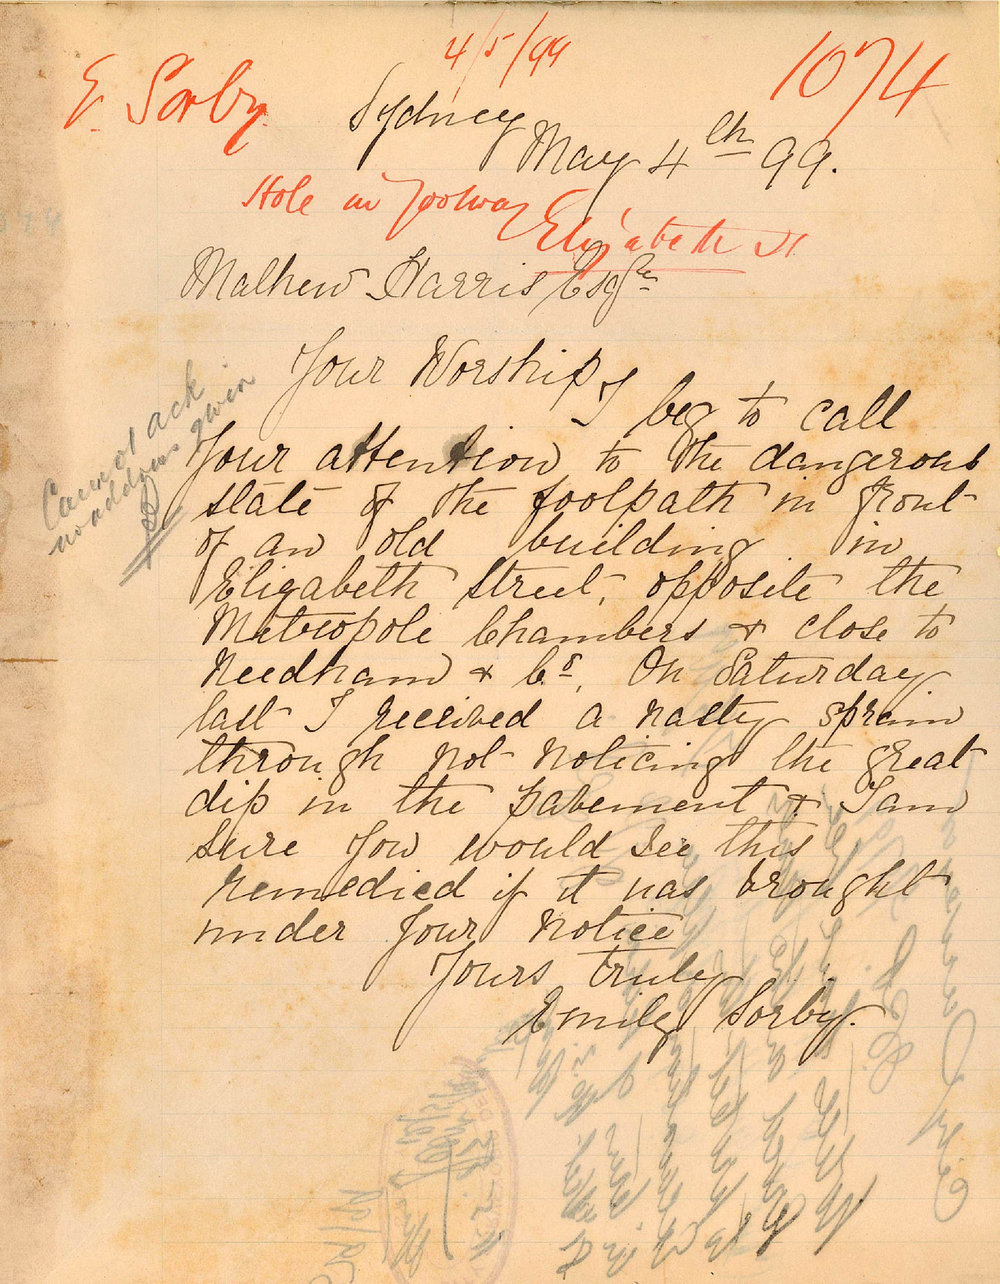 4/5/99
E. Sorby.
1074
Sydney
May 4th 99.
Hole in footway
Elizabeth St
Mathew Harris Esqre
Your Worship,
I beg to call
Your attention to the dangerous
state of the footpath in front
of an old building in
Elizabeth Street, opposite the
Metropole Chambers & close to
Needham & Co. On Saturday
last I received a nasty sprain
through not noticing the great
dip in the pavement & I am
sure you would see this
remedied if it was brought
under Your notice
Yours truly
Emily Sorby.
Cannot ack
no address given